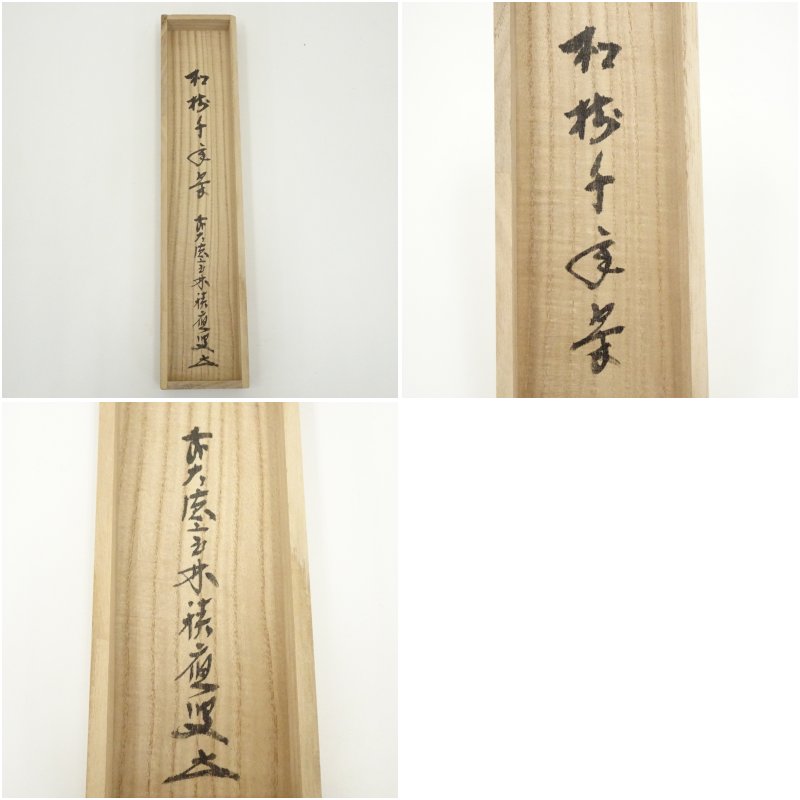 松樹千年翠
前大徳玉林積應叟
松樹千年翠
前大徳玉林積應叟